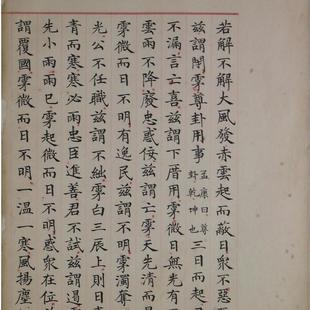 若解不解大風發赤雲起而蔽日衆不惡
茲謂閉霿尊卦用事
孟康曰尊
卦乾坤也
三日而起
不漏言亡喜茲謂下厝用霿微日無光有
雲雨不降廢忠惑佞茲謂亡霿天先清而
霿微而日不明有逸民茲謂不明霿濁奪
光公不任職茲謂不絀霿白三辰上則日
青而寒寒必雨忠臣進善君不試茲謂遏
先小雨雨已霿起微而日不明惑衆在位
謂覆國霿微而日不明一溫一寒風揚塵